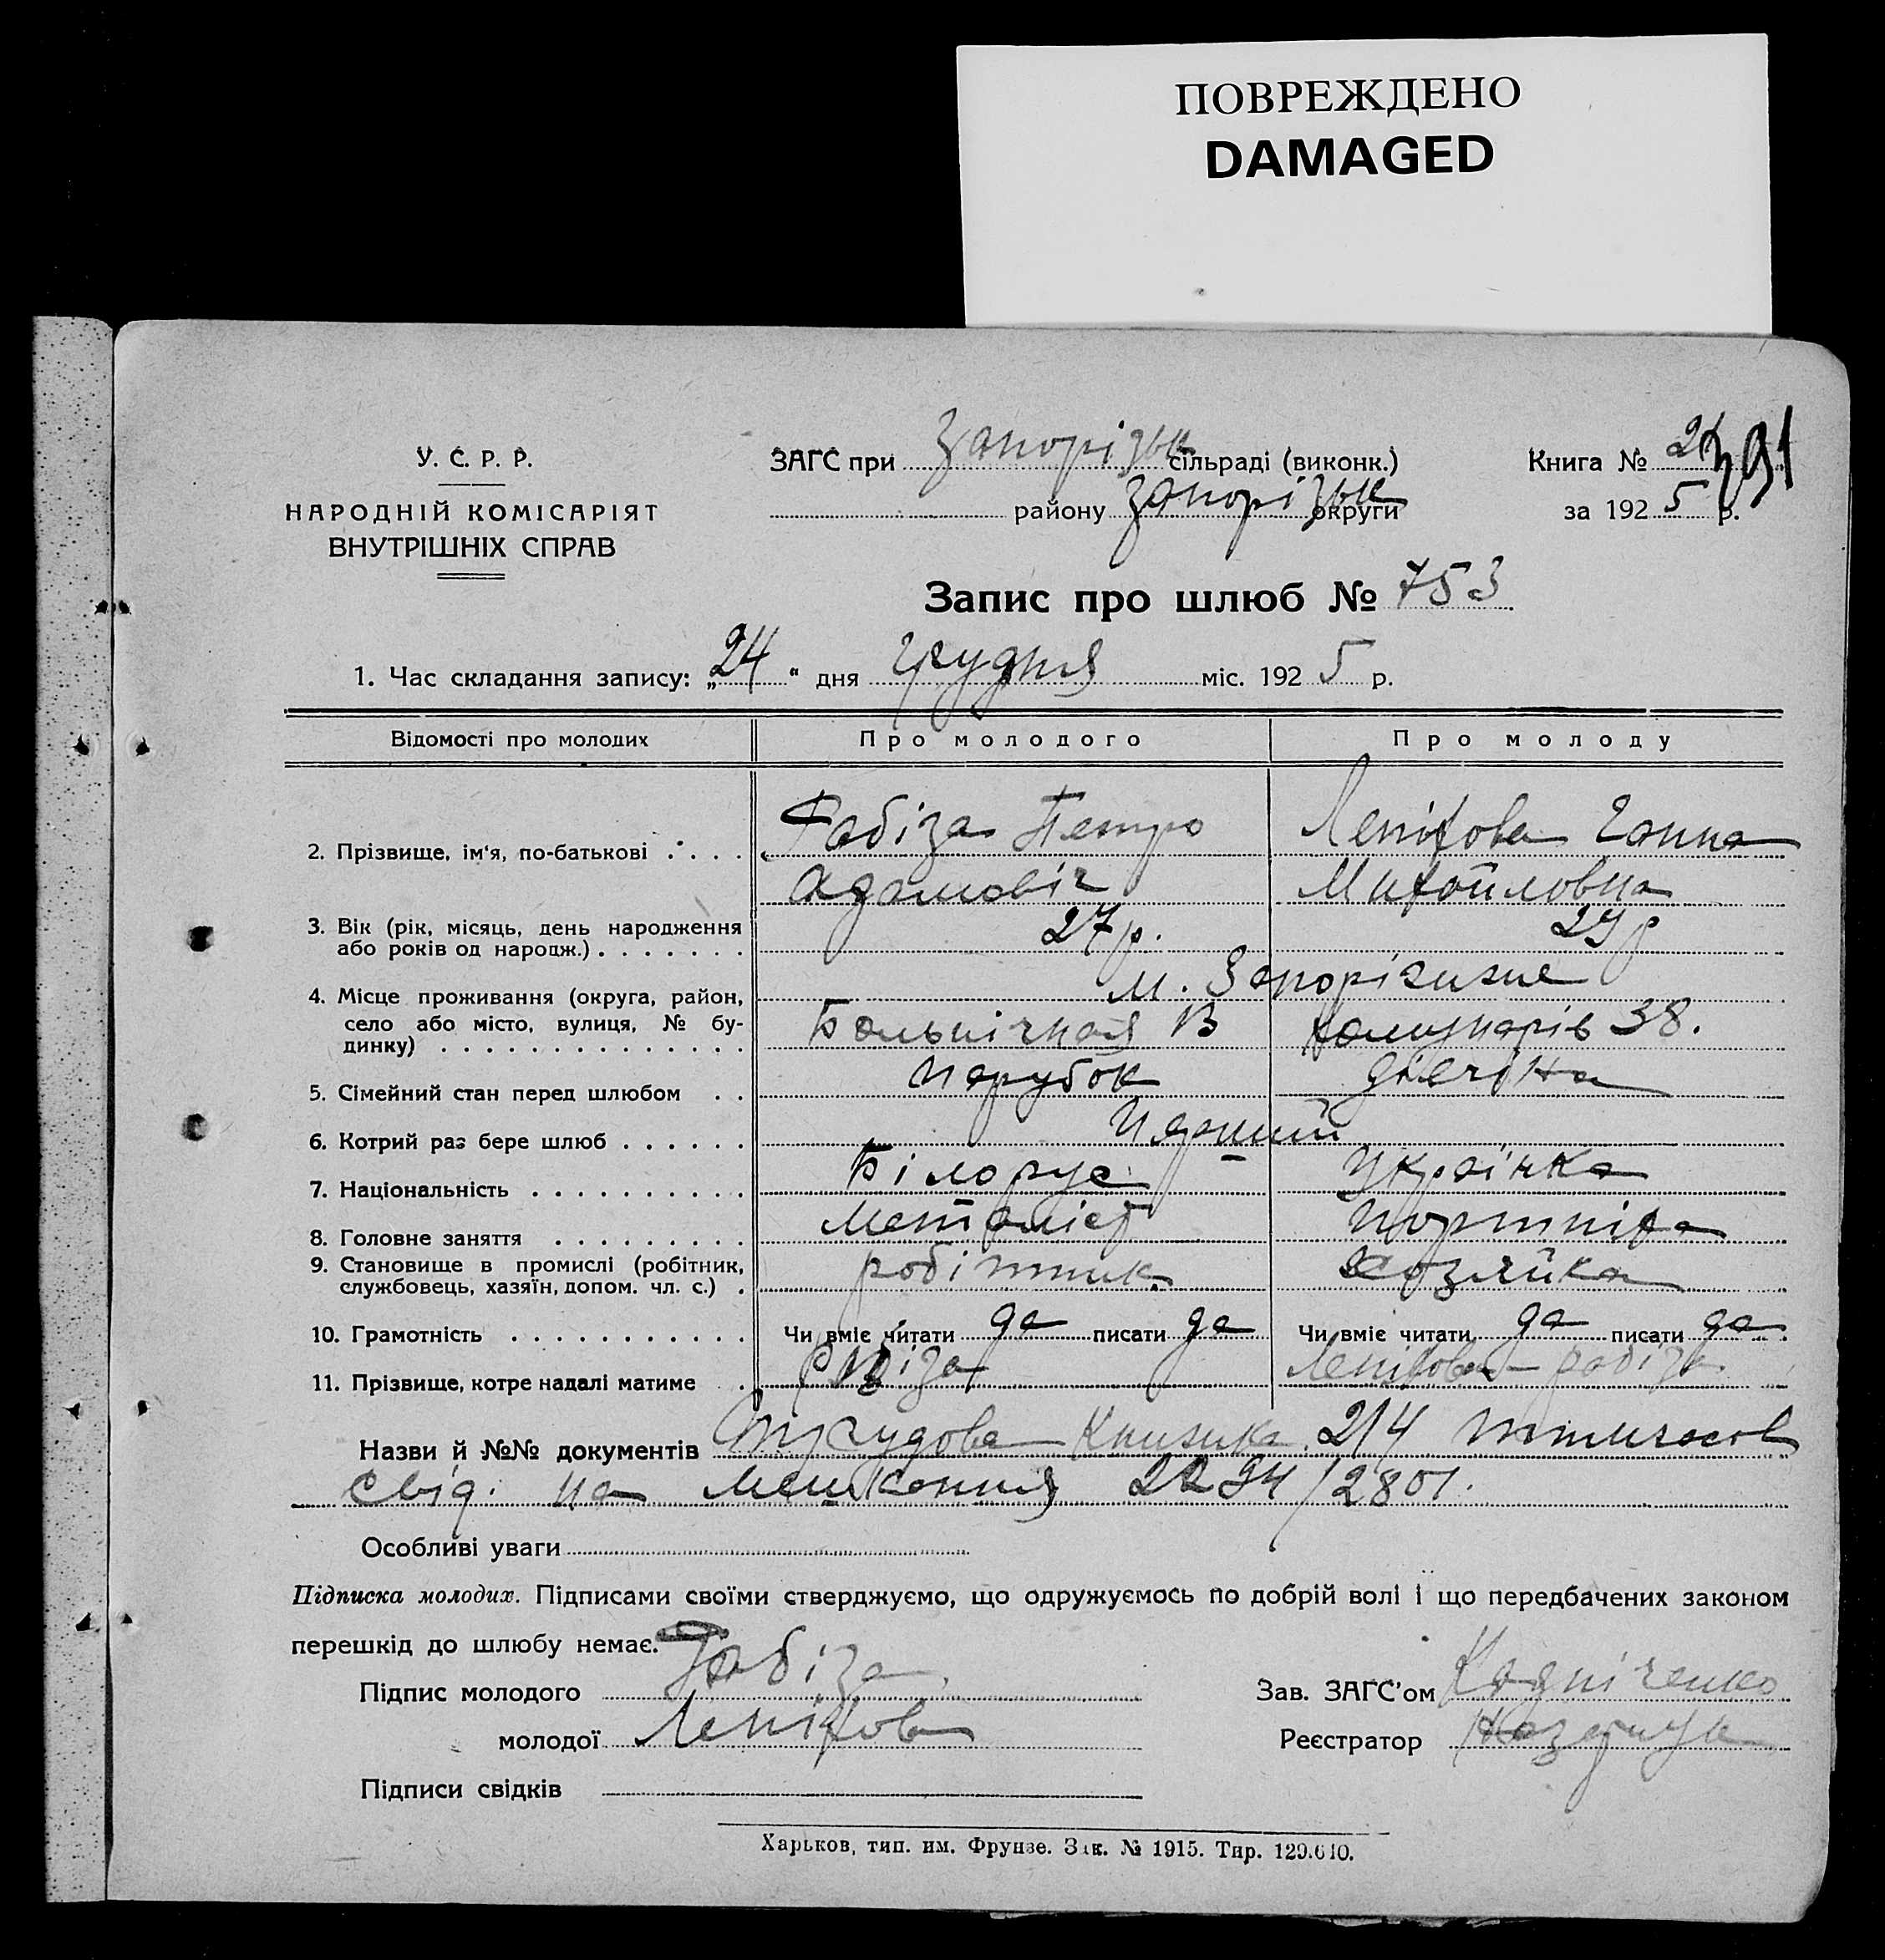 ПОВРЕЖДЕНО
DAMAGED
У. С. Р. Р.
НАРОДНІЙ КОМІСАРІЯТ
ВНУТРІШНІХ СПРАВ
ЗАГС при Запорізьк сільраді (виконк.)
району Запорізьк округи
Книга №
за 1925 р.
Запис про шлюб № 753
1. Час складання запису: „24“ дня Грудня міс. 1925 р.
Відомості про молодих Про молодого Про молоду
2. Прізвище, ім'я, по-батькові . . . . Рабіза Петро Лепіхова Ганна
Адамовіч Михайловна
3. Вік (рік, місяць, день народження
або років од народж.) . . . . . . . 27 р. 29 р
4. Місце проживання (округа, район,
село або місто, вулиця, № бу-
динку) . . . . . . . . . . . . . .
м. Запоріжжє
Больнічная Комунарів 38.
5. Сімейний стан перед шлюбом . . парубок дівчіна
6. Котрий раз бере шлюб . . . . . .
7. Національність . . . . . . . . . . Білорус Українка
8. Головне заняття . . . . . . . . . Металіст портніха
9. Становище в промислі (робітник,
службовець, хазяїн, допом. чл. с.) . робітник хозяйка
10. Грамотність . . . . . . . . . . . Чи вміє читати да писати да Чи вміє читати да писати да
11. Прізвище, котре надалі матиме . Рабіза Лепіхова-Рабіза
Назви й №№ документів Трудова Книжка 214 тимчасов
свід. на мешкання 2234/2801.
Особливі уваги
Підписка молодих. Підписами своїми стверджуємо, що одружуємось по добрій волі і що передбачених законом
перешкід до шлюбу немає.
Підпис молодого Рабіза
молодої Лепіхов
Підписи свідків
Зав. ЗАГС'ом
Реєстратор
Харьков, тип. им. Фрунзе. Зак. № 1915. Тир. 129.610.